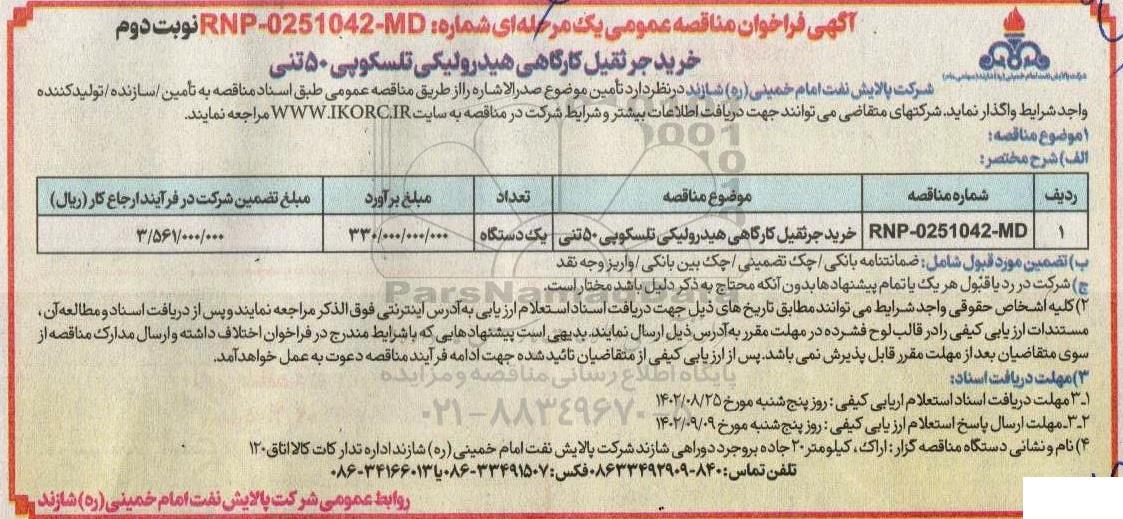 آگهی فراخوان مناقصه عمومی یک مرحله ای شماره: RNP-0251042-MD نوبت دوم
خرید جرثقیل کارگاهی هیدرولیکی تلسکوپی ۵۰ تنی
شرکت پالایش نفت امام خمینی (ره) شازند (سهامی عام)
شرکت پالایش نفت امام خمینی (ره) شازند در نظر دارد تأمین موضوع صدرالاشاره را از طریق مناقصه عمومی طبق اسناد مناقصه به تأمین/سازنده/تولیدکننده
واجد شرایط واگذار نماید. شرکتهای متقاضی می توانند جهت دریافت اطلاعات بیشتر و شرایط شرکت در مناقصه به سایت WWW.IKORC.IR مراجعه نمایند.
۱موضوع مناقصه:
الف) شرح مختصر:
ردیف شماره مناقصه موضوع مناقصه تعداد مبلغ برآورد مبلغ تضمین شرکت در فرآیند ارجاع کار (ریال)
۱ RNP-0251042-MD خرید جرثقیل کارگاهی هیدرولیکی تلسکوپی ۵۰ تنی یک دستگاه ۳۳۰/۰۰۰/۰۰۰/۰۰۰ ۳/۵۶۱/۰۰۰/۰۰۰
ب) تضمین مورد قبول شامل: ضمانتنامه بانکی/چک تضمینی/چک بین بانکی/واریز وجه نقد
ج) شرکت در رد یا قبول هر یک یا تمام پیشنهادها بدون آنکه محتاج به ذکر دلیل باشد مختار است.
۲) کلیه اشخاص حقوقی واجد شرایط می توانند مطابق تاریخ های ذیل جهت دریافت اسناد استعلام ارزیابی به آدرس اینترنتی فوق الذکر مراجعه نمایند و پس از دریافت اسناد و مطالعه آن،
مستندات ارزیابی کیفی را در قالب لوح فشرده در مهلت مقرر به آدرس ذیل ارسال نمایند. بدیهی است پیشنهادهایی که با شرایط مندرج در فراخوان اختلاف داشته و ارسال مدارک مناقصه از
سوی متقاضیان بعد از مهلت مقرر قابل پذیرش نمی باشد. پس از ارزیابی کیفی از متقاضیان تائید شده جهت ادامه فرآیند مناقصه دعوت به عمل خواهد آمد.
۳) مهلت دریافت اسناد:
۳-۱ مهلت دریافت اسناد استعلام اریابی کیفی: روز پنج شنبه مورخ ۱۴۰۲/۰۸/۲۵
۳-۲- مهلت ارسال پاسخ استعلام ارزیابی کیفی: روز پنج شنبه مورخ ۱۴۰۲/۰۹/۰۹
۴) نام و نشانی دستگاه مناقصه گزار: اراک، کیلومتر ۲۰ جاده بروجرد دوراهی شازند شرکت پالایش نفت امام خمینی (ره) شازند اداره تدارکات کالا اتاق ۱۲۰
تلفن تماس: ۸۴۰-۰۸۶۳۳۴۹۲۹۰۹ فکس: ۳۳۴۹۱۵۰۷-۰۸۶ یا ۳۴۱۶۶۰۱۳-۰۸۶
روابط عمومی شرکت پالایش نفت امام خمینی (ره) شازند
ParsNamadData
پایگاه اطلاع رسانی مناقصه و مزایده
۰۲۱-۸۸۳۴۹۶۷۰-۵